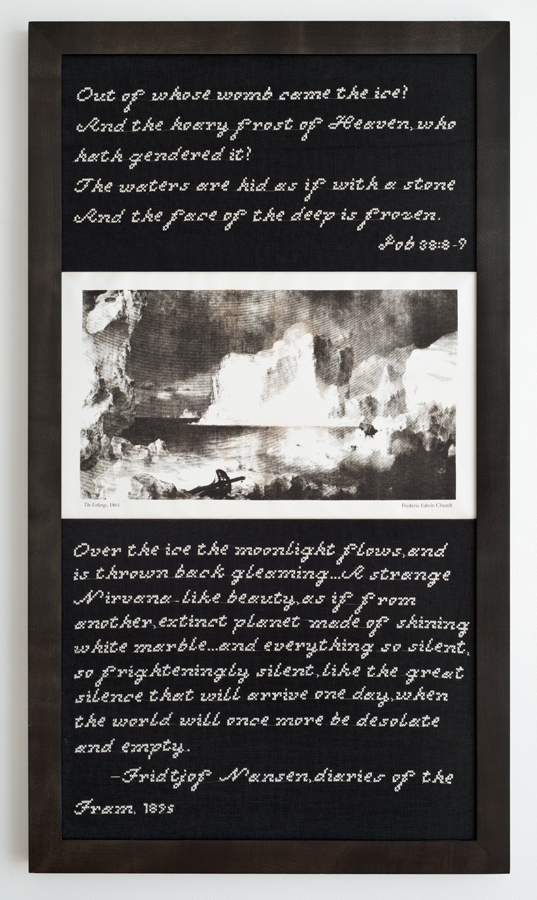 Out of whose womb came the ice?
And the hoary frost of Heaven, who
hath gendered it?
The waters are hid as if with a stone
And the face of the deep is frozen.
Job 38:8-9
The Icebergs, 1861
Frederic Edwin Church
Over the ice the moonlight flows, and
is thrown back gleaming...A strange
Nirvana-like beauty, as if from
another, extinct planet made of shining
white marble...and everything so silent,
so frighteningly silent, like the great
silence that will arrive one day, when
the world will once more be desolate
and empty.
-Fridtjof Nansen, diaries of the
Fram, 1895